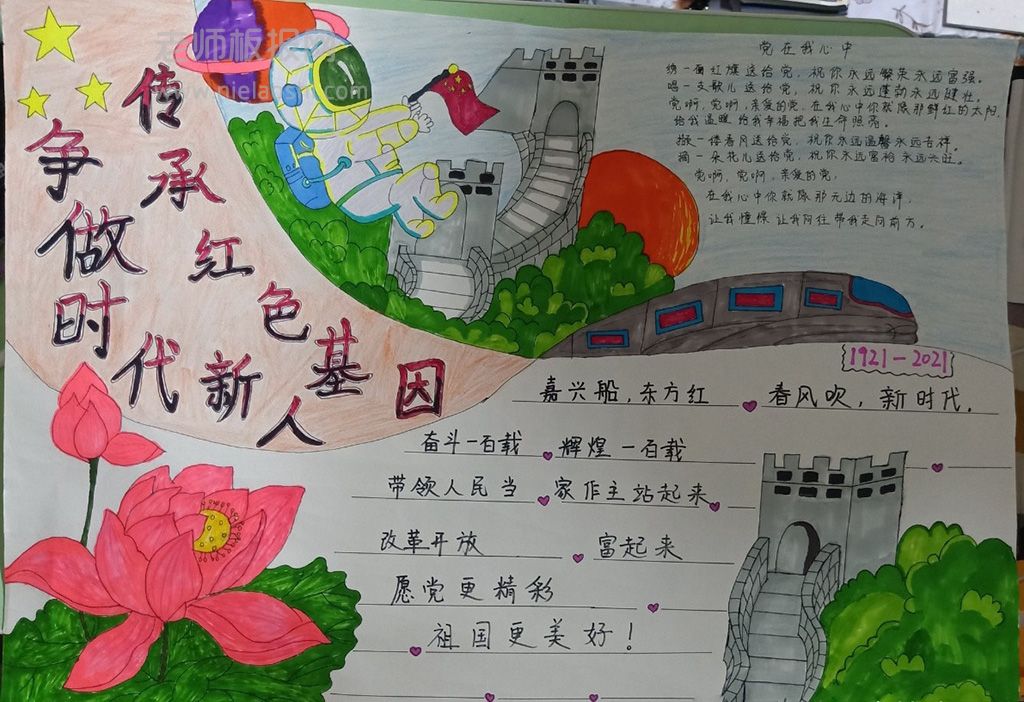 传承红色基因
争做时代新人
党在我心中
绣一面红旗送给党,祝你永远繁荣永远富强。
唱一支歌儿送给党,祝你永远蓬勃永远健壮。
党啊,党啊,亲爱的党,在我心中你就像那鲜红的太阳,
给我温暖 给我幸福把我生命照亮。
掬一缕春风送给党,祝你永远温馨永远吉祥。
摘一朵花儿送给党,祝你永远富裕永远兴旺。
党啊,党啊,亲爱的党,
在我心中你就像那无边的海洋,
让我憧憬 让我向往 带我走向前方。
1921-2021
嘉兴船,东方红 春风吹,新时代,
奋斗一百载 辉煌一百载
带领人民当 家作主站起来
改革开放 富起来
愿党更精彩
祖国更美好!